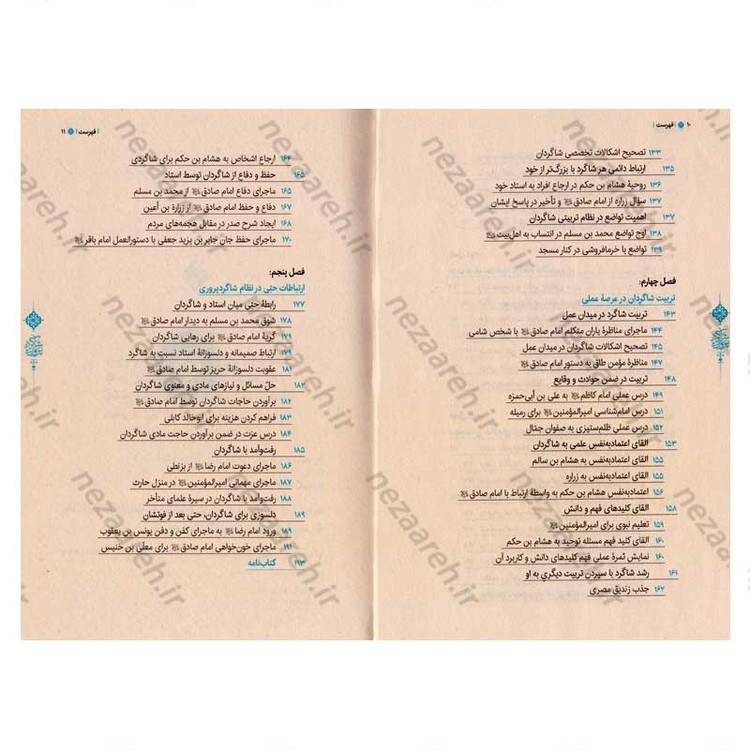 ۱۰ | فهرست |
۱۳۳ تصحیح اشکالات تخصصی شاگردان
۱۳۵ ارتباط دائمی هر شاگرد با بزرگ‌تر از خود
۱۳۶ روحیهٔ هشام بن حکم در ارجاع افراد به استاد خود
۱۳۷ سؤال زراره از امام صادق و تأخیر در پاسخ ایشان
۱۳۷ اهمیت تواضع در نظام تربیتی شاگردان
۱۳۸ اوج تواضع محمد بن مسلم در انتساب به اهل‌بیت
۱۳۹ تواضع با خرمافروشی در کنار مسجد
فصل چهارم:
تربیت شاگردان در عرصهٔ عملی
۱۴۳ تربیت شاگرد در میدان عمل
۱۴۴ ماجرای مناظرهٔ یاران متکلم امام صادق با شخص شامی
۱۴۵ تصحیح اشکالات شاگردان در میدان عمل
۱۴۷ مناظرهٔ مؤمن طاق به دستور امام صادق
۱۴۸ تربیت در ضمن حوادث و وقایع
۱۴۹ درس عملی امام کاظم به علی بن ابی‌حمزه
۱۵۱ درس امام‌شناسی امیرالمؤمنین برای رمیله
۱۵۲ درس عملی ظلم‌ستیزی به صفوان جمّال
۱۵۳ القای اعتمادبه‌نفس علمی به شاگردان
۱۵۵ القای اعتمادبه‌نفس به هشام بن سالم
۱۵۵ القای اعتمادبه‌نفس به زراره
۱۵۶ اعتمادبه‌نفس هشام بن حکم به واسطهٔ ارتباط با امام صادق
۱۵۸ القای کلیدهای فهم و دانش
۱۵۹ تعلیم نبوی برای امیرالمؤمنین
۱۶۰ القای کلید فهم مسئله توحید به هشام بن حکم
۱۶۰ نمایش ثمرهٔ عملی فهم کلیدهای دانش و کاربرد آن
۱۶۱ رشد شاگرد با سپردن تربیت دیگری به او
۱۶۲ جذب زندیق مصری
| فهرست | ۱۱
۱۶۴ ارجاع اشخاص به هشام بن حکم برای شاگردی
۱۶۵ حفظ و دفاع از شاگردان توسط استاد
۱۶۵ ماجرای دفاع امام صادق از محمد بن مسلم
۱۶۷ دفاع و حفظ امام صادق از زرارة بن أعین
۱۶۸ ایجاد شرح صدر در مقابل هجمه‌های مردم
۱۷۰ ماجرای حفظ جان جابر بن یزید جعفی با دستورالعمل امام باقر
فصل پنجم:
ارتباطات حبّی در نظام شاگردپروری
۱۷۷ رابطهٔ حبّی میان استاد و شاگردان
۱۷۸ شوق محمد بن مسلم به دیدار امام صادق
۱۷۹ گریهٔ امام صادق برای رهایی شاگردان
۱۷۹ ارتباط صمیمانه و دلسوزانهٔ استاد نسبت به شاگرد
۱۸۱ عقوبت دلسوزانهٔ حریز توسط امام صادق
۱۸۲ حلّ مسائل و نیازهای مادی و معنوی شاگردان
۱۸۲ برآوردن حاجات شاگردان توسط امام صادق
۱۸۳ فراهم کردن هزینه برای ابوخالد کابلی
۱۸۴ درس عزت در ضمن برآوردن حاجت مادی شاگردان
۱۸۵ رفت‌وآمد با شاگردان
۱۸۶ ماجرای دعوت امام رضا از بزنطی
۱۸۷ ماجرای مهمانی امیرالمؤمنین در منزل حارث
۱۸۸ رفت‌وآمد با شاگردان در سیرهٔ علمای متأخر
۱۸۹ دلسوزی برای شاگردان، حتی بعد از فوتشان
۱۸۹ ورود امام رضا به ماجرای کفن و دفن یونس بن یعقوب
۱۹۱ ماجرای خون‌خواهی امام صادق برای معلّی بن خنیس
۱۹۳ کتاب‌نامه
nezaareh.ir